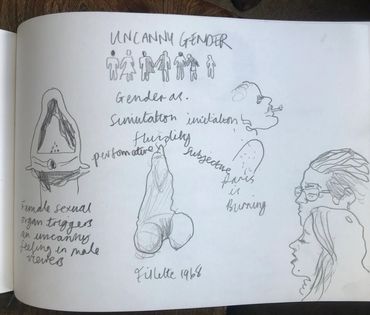 UNCANNY GENDER
Gender as.
Simulation imitation
Fluidity
performative
Subjective
Paris
is
Burning
Female sexual
organ triggers
an uncanny
feeling in male
viewers
Fillette 1968